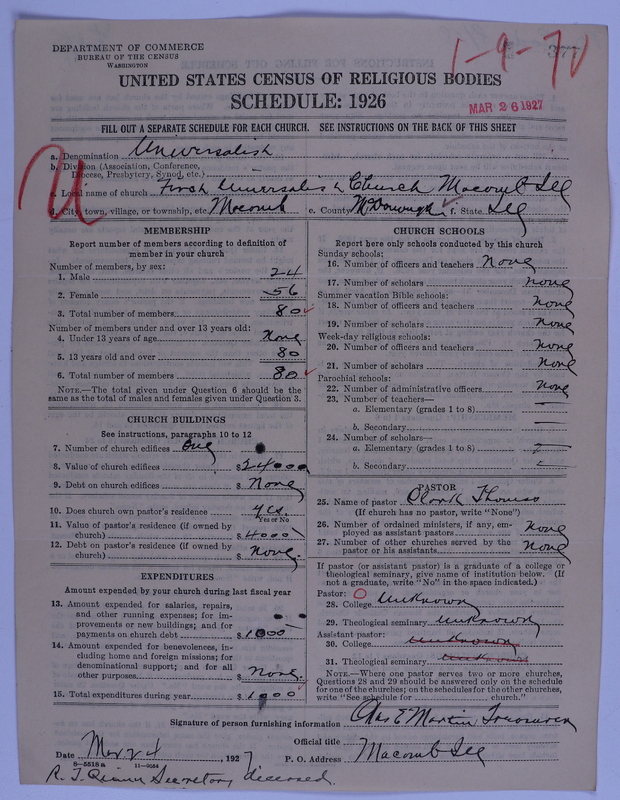 1-9-70
DEPARTMENT OF COMMERCE
BUREAU OF THE CENSUS
WASHINGTON
UNITED STATES CENSUS OF RELIGIOUS BODIES
SCHEDULE: 1926
MAR 26 1927
FILL OUT A SEPARATE SCHEDULE FOR EACH CHURCH. SEE INSTRUCTIONS ON THE BACK OF THIS SHEET
U
a. Denomination Universalish
b. Division (Association, Conference,
Diocese, Presbytery, Synod, etc.)
c. Local name of church First Universalish Church Macomb Ill
d. City, town, village, or township, etc. Macomb e. County McDonough f. State Ill
MEMBERSHIP
Report number of members according to definition of
member in your church
Number of members, by sex:
1. Male 24
2. Female 56
3. Total number of members 80
Number of members under and over 13 years old:
4. Under 13 years of age None
5. 13 years old and over 80
6. Total number of members 80
NOTE.—The total given under Question 6 should be the
same as the total of males and females given under Question 3.
CHURCH BUILDINGS
See instructions, paragraphs 10 to 12
7. Number of church edifices One
8. Value of church edifices $24000
9. Debt on church edifices $ None
10. Does church own pastor's residence? Yes.
Yes or No
11. Value of pastor's residence (if owned by
church) $4000
12. Debt on pastor's residence (if owned by
church) $ None.
EXPENDITURES
Amount expended by your church during last fiscal year
13. Amount expended for salaries, repairs,
and other running expenses; for im-
provements or new buildings; and for
payments on church debt $1000
14. Amount expended for benevolences, in-
cluding home and foreign missions; for
denominational support; and for all
other purposes $ None
15. Total expenditures during year $1000
CHURCH SCHOOLS
Report here only schools conducted by this church
Sunday schools:
16. Number of officers and teachers None
17. Number of scholars None
Summer vacation Bible schools:
18. Number of officers and teachers None
19. Number of scholars None
Week-day religious schools:
20. Number of officers and teachers None
21. Number of scholars None
Parochial schools:
22. Number of administrative officers None
23. Number of teachers—
a. Elementary (grades 1 to 8) —
b. Secondary —
24. Number of scholars—
a. Elementary (grades 1 to 8)
b. Secondary
PASTOR
25. Name of pastor Clark Thomas
(If church has no pastor, write "None")
26. Number of ordained ministers, if any, em-
ployed as assistant pastors None
27. Number of other churches served by the
pastor or his assistants None
If pastor (or assistant pastor) is a graduate of a college or
theological seminary, give name of institution below. (If
not a graduate, write "No" in the space indicated.)
Pastor:
28. College Unknown
29. Theological seminary Unknown
Assistant pastor:
30. College Unknown
31. Theological seminary Unknown
NOTE.—Where one pastor serves two or more churches,
Questions 28 and 29 should be answered only on the schedule
for one of the churches; on the schedules for the other churches,
write "See schedule for church."
Signature of person furnishing information Chas E Martin, Treasurer
Official title
Date Mar 24, 1927 P. O. Address Macomb Ill
8-5518a 11-9054
Secretary, deceased.